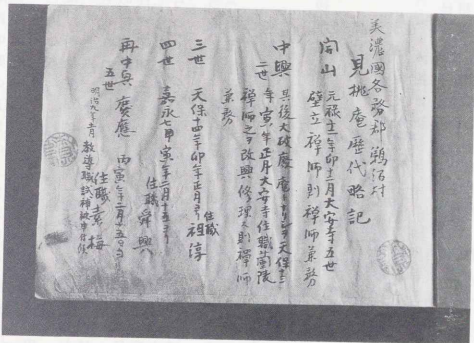 美濃國各務郡鵜沼村
見桃庵歴代略記
開山 元禄十二年卯十二月大安寺五世
壁立禅師則禅師兼努
中興 其後大破廢 ヲ天保十三
二世 年寅年正月大安寺住職蘭陵
禅師之ヲ改興修理ス則禅師
兼務
三世 天保十四年卯年正月ヨリ住職祖淳
四世 嘉永七甲寅年二月十五ヨリ
住職舜興
再中興 慶應 丙寅年二月十五日ヨリ
五世 住職 梅
明治九年 月教導職試補